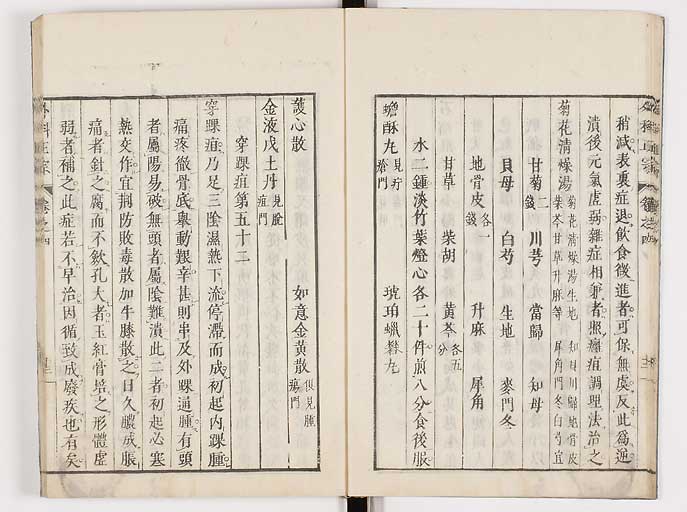 稍減表裏症退飲食復進者可保無虞反此為逆
潰後元氣虛弱雜症相兼者照癰疽調理法治之
菊花清燥湯 菊花清燥湯生地 知母川歸地骨皮
柴芩甘草升麻等 犀角門冬白芍宜
甘菊二錢 川芎 當歸 知母
貝母 白芍 生地 麥門冬
地骨皮各一錢 升麻 犀角
甘草 柴胡 黃芩各五分
水二鍾淡竹葉燈心各二十件煎八分食後服
蟾酥丸見疔瘡門 琥珀蠟礬丸
護心散 如意金黃散俱見腫瘍門
金液戊土丹見脫疽門
穿踝疽第五十二
穿踝疽乃足三陰濕熱下流停滯而成初起內踝腫
痛疼徹骨底舉動艱辛甚則串及外踝通腫有頭
者屬陽易破無頭者屬陰難潰此二者初起必寒
熱交作宜荊防敗毒散加牛膝散之日久膿成脹
痛者針之腐而不斂孔大者玉紅膏培之形體虛
弱者補之此症若不早治因循致成廢疾也有矣
外科正宗 卷之四